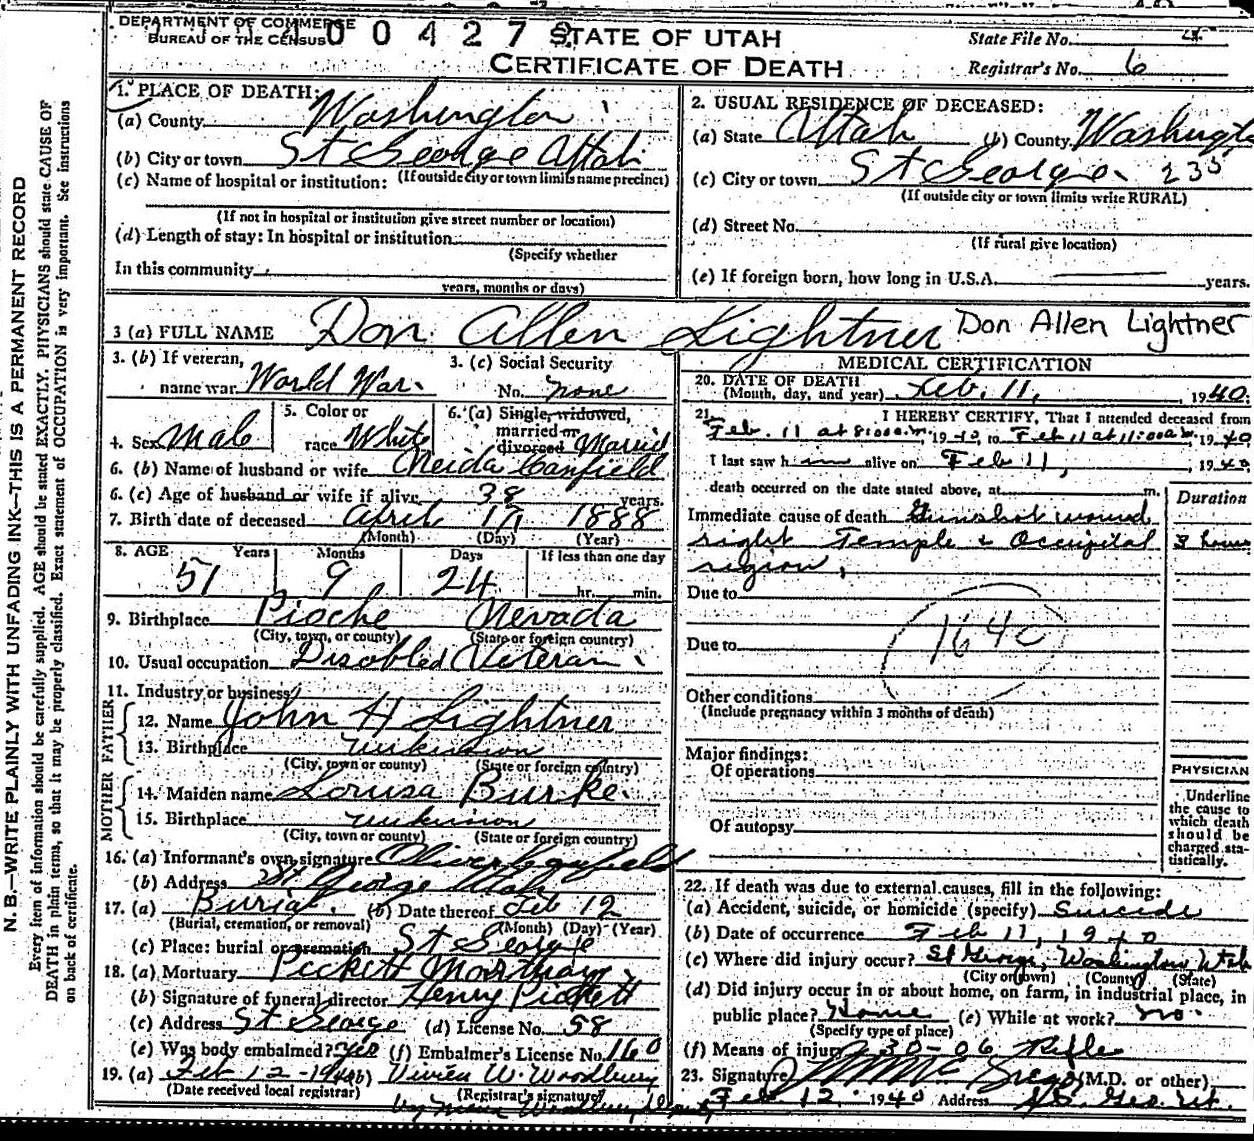 DEPARTMENT OF COMMERCE
BUREAU OF THE CENSUS
0 0 4 2 7
STATE OF UTAH
CERTIFICATE OF DEATH
State File No.
Registrar's No. 6
1. PLACE OF DEATH:
(a) County Washington
(b) City or town St George Utah
(If outside city or town limits name precinct)
(c) Name of hospital or institution:
(If not in hospital or institution give street number or location)
(d) Length of stay: In hospital or institution
(Specify whether
In this community
years, months or days)
2. USUAL RESIDENCE OF DECEASED:
(a) State Utah (b) County Washingt
(c) City or town St George 235
(If outside city or town limits write RURAL)
(d) Street No.
(If rural give location)
(e) If foreign born, how long in U.S.A. years.
3 (a) FULL NAME Don Allen Lightner Don Allen Lightner
3. (b) If veteran, name war World War.
3. (c) Social Security No. none
4. Sex Male
5. Color or race White
6. (a) Single, widowed, married or divorced Married
6. (b) Name of husband or wife Canfield
6. (c) Age of husband or wife if alive 38 years.
7. Birth date of deceased April 17 1888
(Month) (Day) (Year)
8. AGE Years Months Days If less than one day
51 9 24 hr. min.
9. Birthplace Pioche Nevada
(City, town, or county) (State or foreign country)
10. Usual occupation Disabled Veteran
11. Industry or business
FATHER
12. Name John H Lightner
13. Birthplace unknown
(City, town or county) (State or foreign country)
MOTHER
14. Maiden name Louisa Burke.
15. Birthplace unknown
(City, town or county) (State or foreign country)
16. (a) Informant's own signature Canfield
(b) Address St George Utah
17. (a) Burial. (b) Date thereof Feb 12
(Burial, cremation, or removal) (Month) (Day) (Year)
(c) Place: burial or cremation St George
18. (a) Mortuary Pickett Mortuary
(b) Signature of funeral director Henry Pickett
(c) Address St George (d) License No. 58
(e) Was body embalmed? Yes (f) Embalmer's License No. 160
19. (a) Feb 12-1940 (b) Vivien W. Woodbury
(Date received local registrar) (Registrar's signature)
by Woodbury
MEDICAL CERTIFICATION
20. DATE OF DEATH
(Month, day, and year) Feb. 11, 1940.
21. I HEREBY CERTIFY, That I attended deceased from
Feb. 11 at 8:00 a.m. 1940, to Feb 11 at 11:00 a.m. 1940
I last saw him alive on Feb 11, 1940
death occurred on the date stated above, at m.
Duration
Immediate cause of death Gunshot wound
right Temple & Occipital 3 hours
region,
Due to
164c
Due to
Other conditions
(Include pregnancy within 3 months of death)
Major findings:
Of operations
Of autopsy
PHYSICIAN
Underline
the cause to
which death
should be
charged sta-
tistically.
22. If death was due to external causes, fill in the following:
(a) Accident, suicide, or homicide (specify) Suicide
(b) Date of occurrence Feb 11, 1940
(c) Where did injury occur? St George, Washington Utah
(City or town) (County) (State)
(d) Did injury occur in or about home, on farm, in industrial place, in
public place? Home (e) While at work? no.
(Specify type of place)
(f) Means of injury 30-06 Rifle
23. Signature (M.D. or other)
Feb 12 1940 Address St. Geo. Ut.
N. B.—WRITE PLAINLY WITH UNFADING INK—THIS IS A PERMANENT RECORD
Every item of information should be carefully supplied. AGE should be stated EXACTLY. PHYSICIANS should state CAUSE OF
DEATH in plain terms, so that it may be properly classified. Exact statement of OCCUPATION is very important. See instructions
on back of certificate.